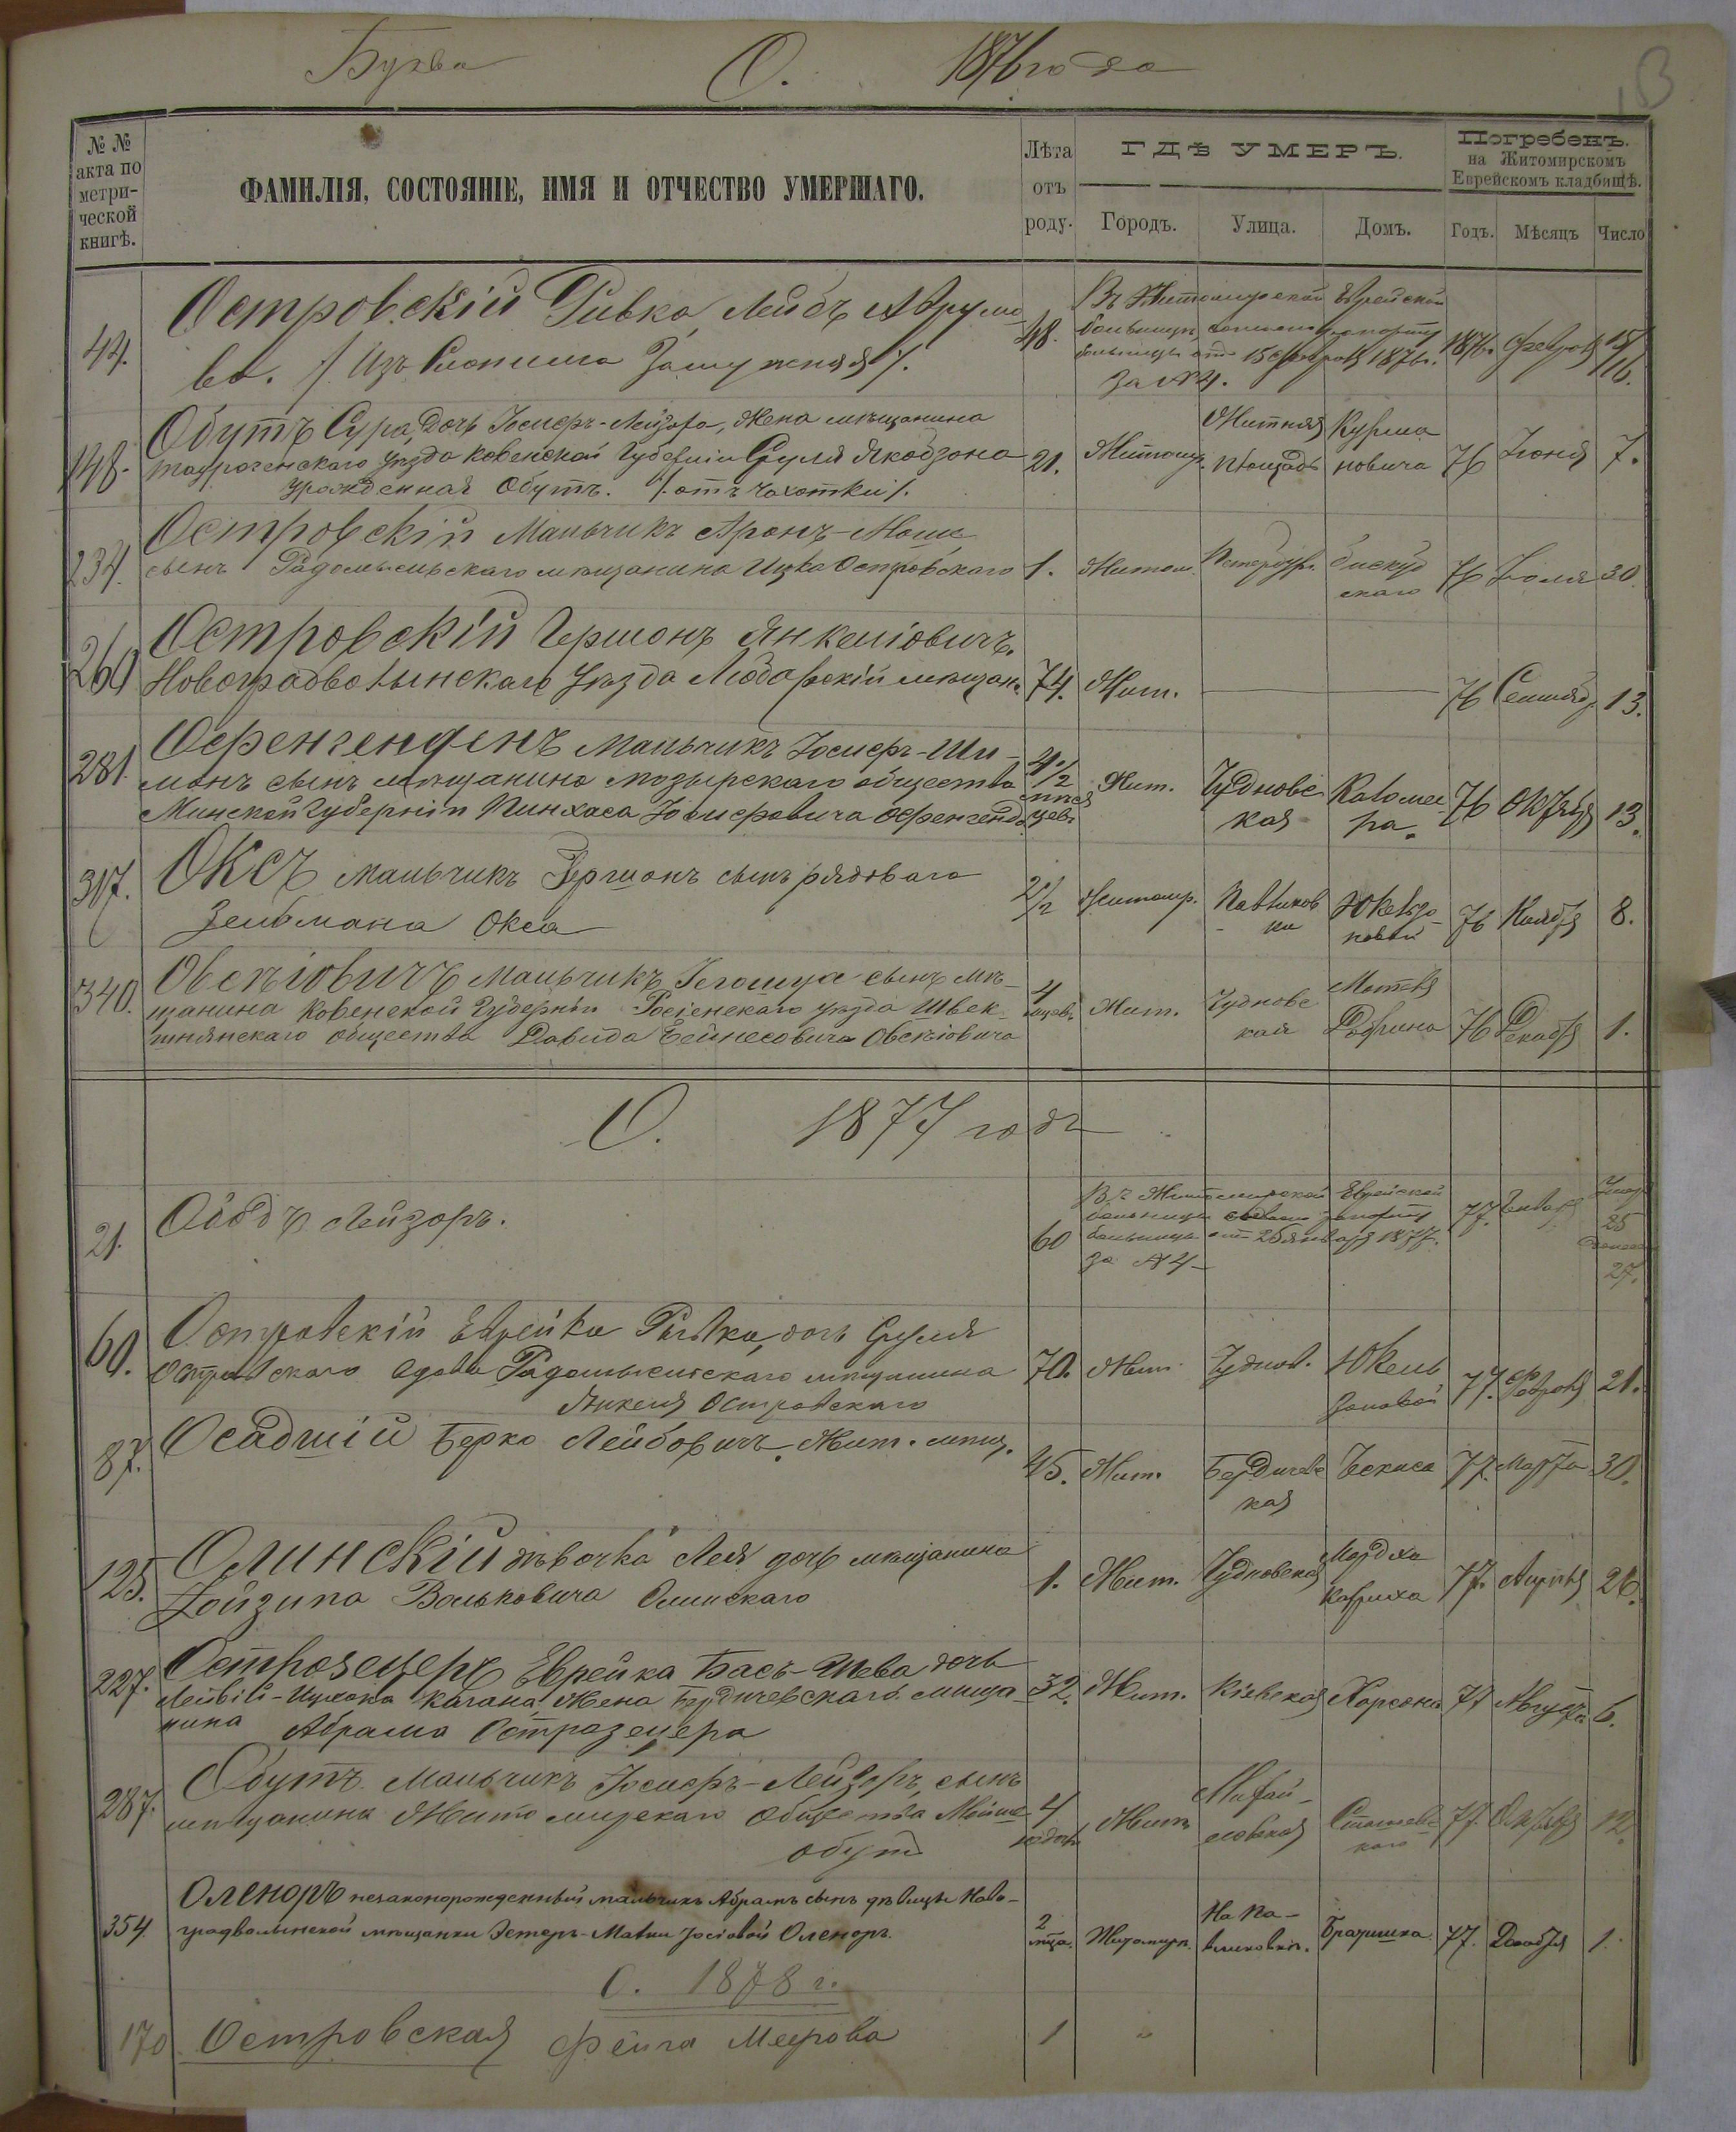 Буква О. 1876 года
№ №
акта по
метри-
ческой
книгѣ.
ФАМИЛІЯ, СОСТОЯНІЕ, ИМЯ И ОТЧЕСТВО УМЕРШАГО.
Лѣта
отъ
роду.
ГДѢ УМЕРЪ.
Городъ. Улица. Домъ.
Погребенъ.
на Житомирскомъ
Еврейскомъ кладбищѣ.
Годъ. Мѣсяцъ Число
44. Островскій Ривка, Лейбъ Аврумо
ва. /Изъ Слонима Замужняя/.
48. Въ Житомирской Еврейской
больницѣ
больницы отъ 15 февраля 1876 г.
За № 4.
1876. Февраля 15/16.
148. Обутъ Сура, дочь Іосифъ-Лейзора, жена мѣщанина
таурогенскаго уѣзда Ковенской Губерніи Сруля Якобзона
урожденная Обутъ. /отъ чахотки/.
21. Житомир. Житная площадь 76 Іюня 7.
234. Островскій Мальчикъ Аронъ-Мошк
сынъ Радомысльскаго мѣщанина Ицка Островскаго
1. Житом. Петербург. 76 Іюля 30.
260 Островскій Гершонъ Янкеліовичъ.
Новоградволынскаго уѣзда Любарскій мѣщан.
74. Жит. 76 Сентябр. 13.
281. Офенгенденъ Мальчикъ Іосифъ-Ши-
монъ сынъ мѣщанина мозырскаго общества
Минской Губерніи Пинхаса Іосифовича Офенгенд.
4 1/2
Жит. Чудновс
кая Каломее
ра. 76 Октября 13.
317. Оксъ мальчикъ Гершонъ сынъ рядоваго
Зельмана Окса
2 1/2 Житомир. Павликов
ки 76 Ноября 8.
340. Овсѣіовичъ мальчикъ Іегошуа сынъ мѣ-
щанина Ковенской Губерніи Росіенскаго уѣзда Швек-
шнянскаго общества Давида Бейнесовича Овсѣіовича
4
мѣсяцев. Жит. Чудновс
кая 76 Декабря 1.
О. 1877 года
21. Лейзоръ.
60 Въ Житомирской Еврейской
больницѣ
больницы отъ 25 января 1877.
за № 4
77. Января
25
27.
60. Островскій Еврейка Рывка, дочь Сруля
Островскаго вдова Радомысльскаго мѣщанина
Янкеля Островскаго
70. Жит. Чуднов. Юкель
зоновой 77. Февраля 21.
87. Осадшій Берко Лейбовичъ. Жит. мѣщ.
45. Жит. Бердичевс
кая Бекиса 77. Марта 30.
125. Олинскій дѣвочка Лея дочь мѣщанина
Зойзипа Вольковича Олинскаго
1. Жит. Чудновская Мордха 77. Апрѣля 26.
227. Острозецеръ Еврейка Бася-Шева дочь
Лейвій-Ицхока Кагана, жена Бердичевскаго мѣща
нина Абрама Острозецера
32. Жит. Кіевская Харсона 77 Августа 6.
287. Обутъ Мальчикъ Іосифъ-Лейзоръ, сынъ
мѣщанина Житомирскаго общества Мойше
Обут
4
Жит. Михай-
ловская 77. Октября 12.
354. Оленоръ незаконорожденный мальчикъ Абрамъ сынъ дѣвицы Ново-
градволынской мѣщанки Эстеръ-Малки Іосіовой Оленоръ.
2
мѣца. Житомиръ. На Па-
вликовкѣ. Братишка. 77. Декабря 1.
О. 1878 г.
170 Островская Фейга Меерова 1 "